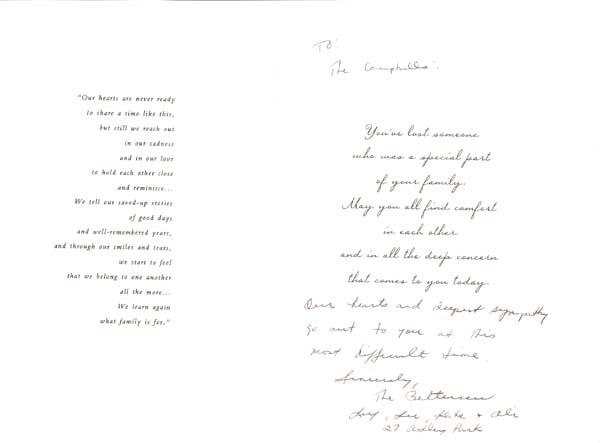 "Our hearts are never ready
to share a time like this,
but still we reach out
in our sadness
and in our love
to hold each other close
and reminisce...
We tell our saved-up stories
of good days
and well-remembered years,
and through our smiles and tears,
we start to feel
that we belong to one another
all the more...
We learn again
what family is for."
To:
The Campbells:
You've lost someone
who was a special part
of your family.
May you all find comfort
in each other
and in all the deep concern
that comes to you today.
Our hearts and deepest sympathy
go out to you at this
most difficult time.
Sincerely,
The
& Ali
27 Ashley Park